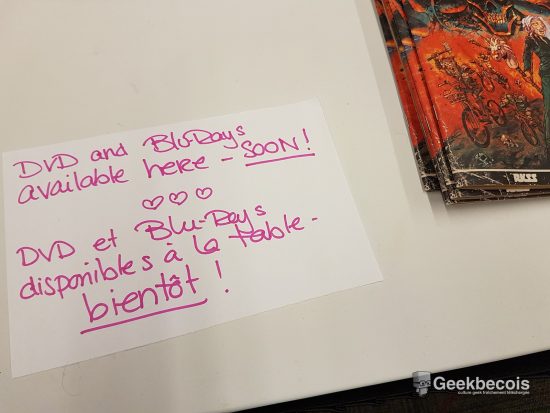 DVD and Blu-Rays
available here - SOON!
DVD et Blu-Rays
disponibles à la table -
bientôt !
Geekbecois
culture geek fraîchement téléchargée